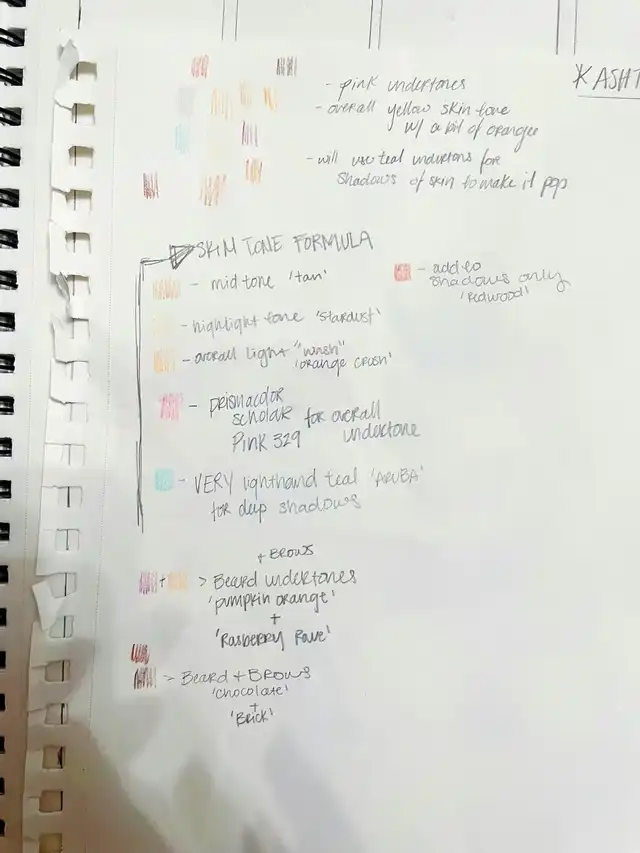 * KASHT
- pink undertones
- overall yellow skin tone
w/ a bit of orangee
- will use teal undertons for
shadows of skin to make it pop
SKIN TONE FORMULA
- mid tone 'tan'
- highlight tone 'stardust'
- overall light "wash"
'orange crush'
- prismacolor
scholar for overall
Pink 329 undertone
- VERY lighthand teal 'ARUBA'
for deep shadows
- add to
shadows only
'Redwood'
+ BROWS
+ > Beard undertones
'pumpkin orange'
+
'Rasberry Rave'
> Beard + BROWS
'chocolate'
+
'Brick'